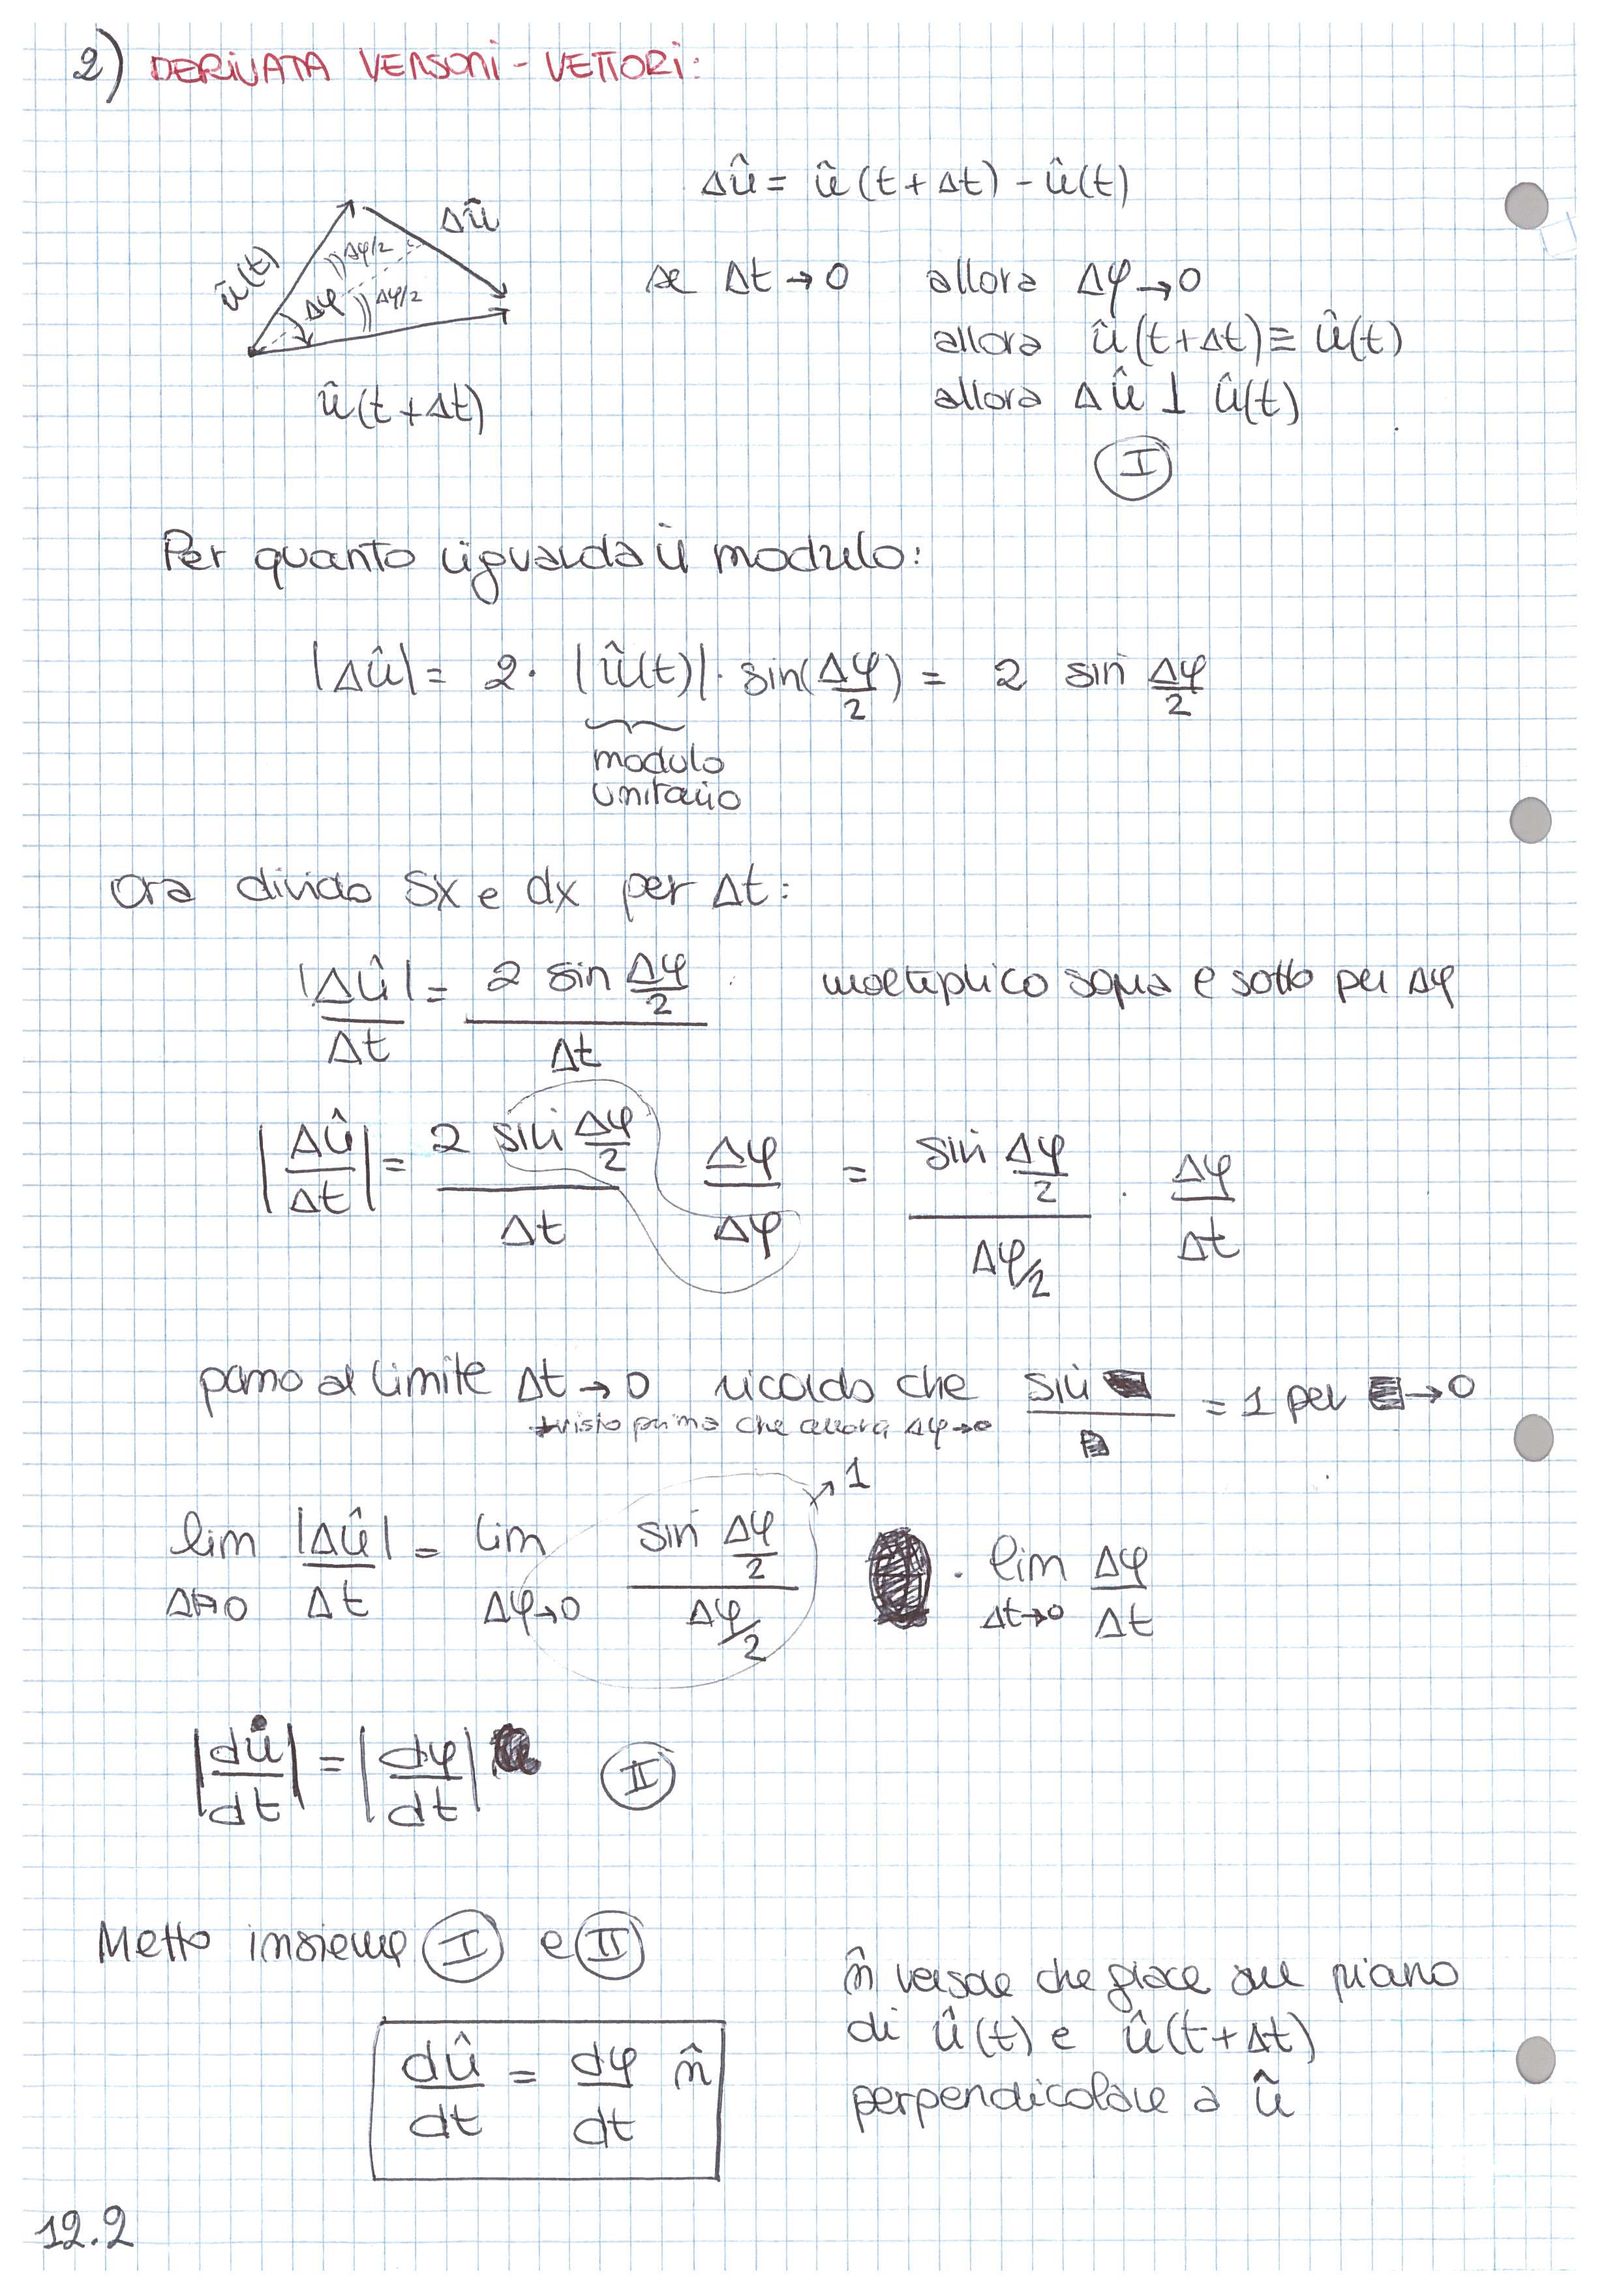 2) DERIVATA VERSORI - VETTORI:
Δû = û(t+Δt) - û(t)
û(t)
Δû
Δφ/2
Δφ
Δφ/2
û(t+Δt)
se Δt→0 allora Δφ→0
allora û(t+Δt) ≡ û(t)
allora Δû ⊥ û(t)
I
Per quanto riguarda il modulo:
|Δû| = 2 · |û(t)| · sin(Δφ/2) = 2 sin Δφ/2
modulo
unitario
Ora divido sx e dx per Δt:
|Δû|/Δt = 2 sin Δφ/2 / Δt moltiplico sopra e sotto per Δφ
|Δû/Δt| = 2 sin Δφ/2 / Δt Δφ/Δφ = sin Δφ/2 / Δφ/2 · Δφ/Δt
passo al limite Δt→0 ricordo che sin ■ / ■ = 1 per ■→0
+visto prima che allora Δφ→0
lim Δt→0 |Δû|/Δt = lim Δφ→0 sin Δφ/2 / Δφ/2 →1 · lim Δt→0 Δφ/Δt
|dû/dt| = |dφ/dt| II
Metto insieme I e II
dû/dt = dφ/dt n̂
n̂ versore che giace sul piano
di û(t) e û(t+Δt)
perpendicolare a û
12.2